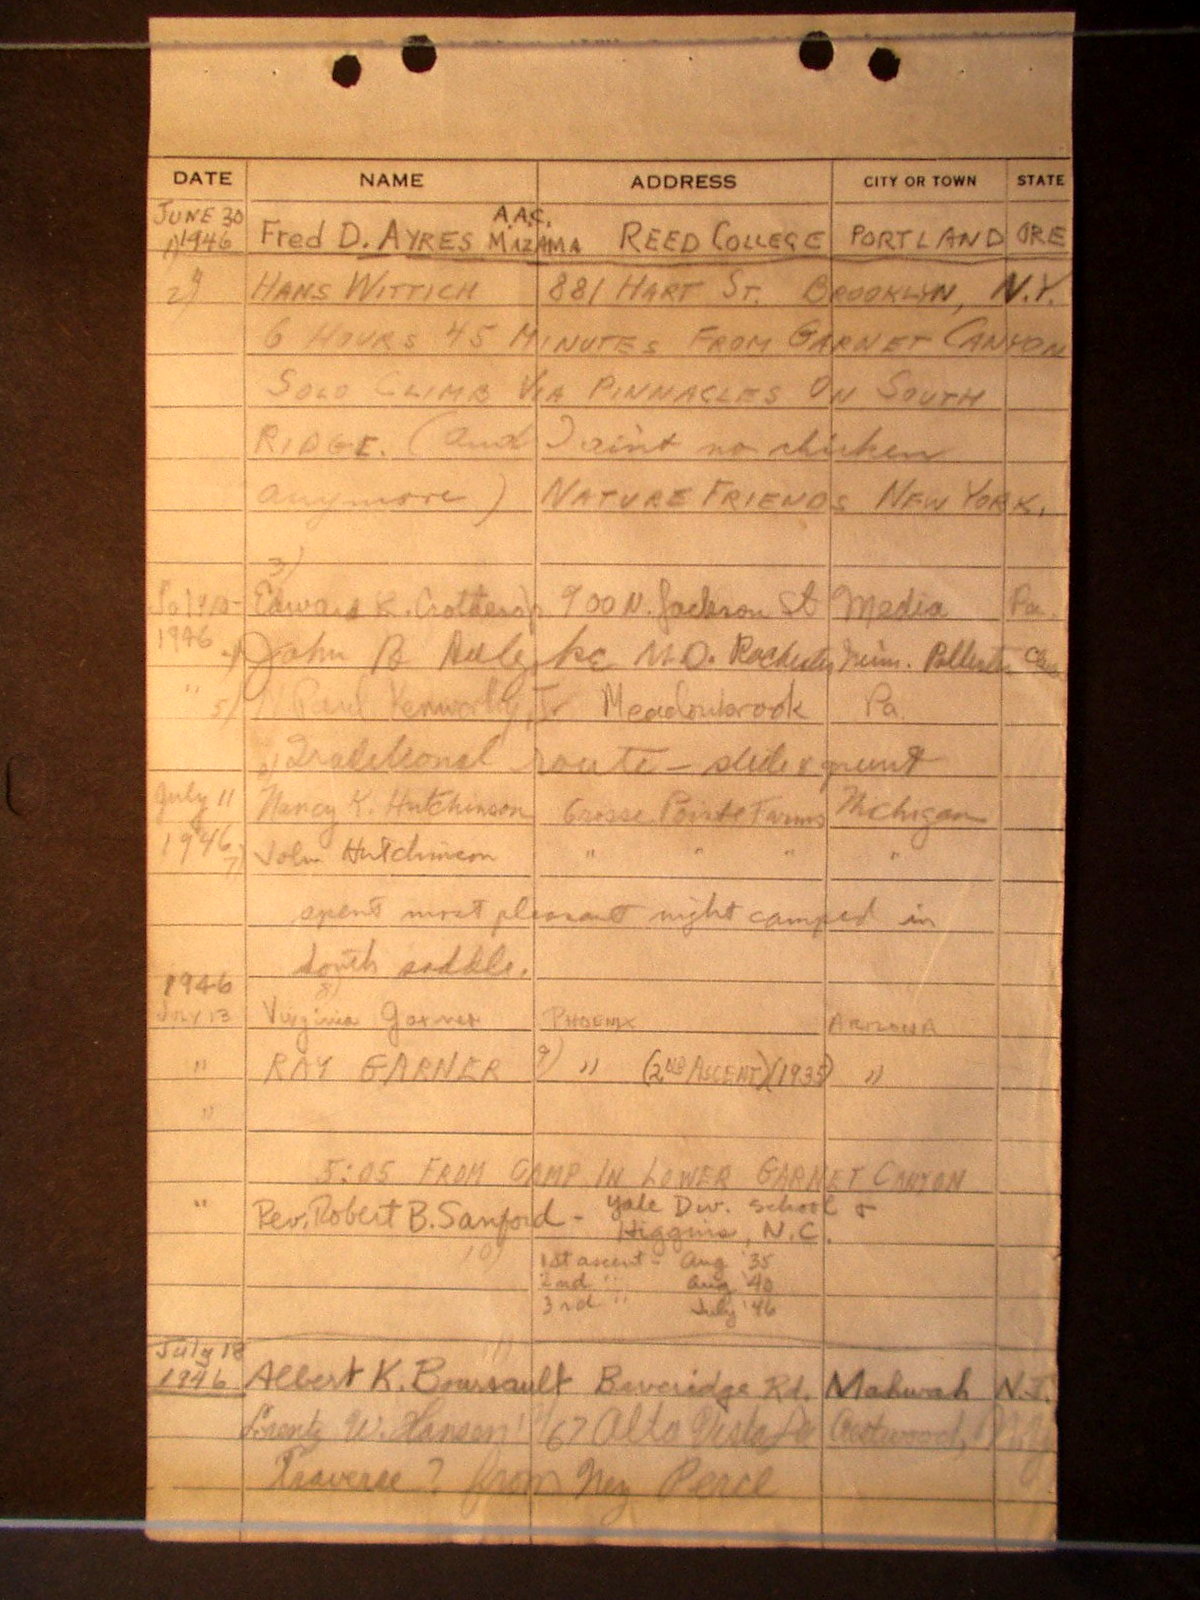 DATE NAME ADDRESS CITY OR TOWN STATE
JUNE 30 A.A.C.
1) 1946 Fred D. AYRES MAZAMA REED COLLEGE PORTLAND ORE
2) " HANS WITTICH 881 HART ST. BROOKLYN, N.Y.
6 HOURS 45 MINUTES FROM GARNET CANYON
SOLO CLIMB VIA PINNACLES ON SOUTH
RIDGE. (and I aint no chicken
anymore) NATURE FRIENDS NEW YORK.
3)
Edward K. 900 N. Jackson St Media Pa.
1946 John B M.D. Rochester Minn.
" 5) Paul Kenworthy, Jr Meadowbrook Pa
Traditional route - slide & grunt
July 11 Nancy K. Hutchinson Grosse Pointe Farms Michigan
1946 7) John Hutchinson " " " "
spent most pleasant night camped in
south saddle.
1946 8)
JULY 13 Virginia Garner PHOENIX ARIZONA
" RAY GARNER 9) " (2ND ASCENT)(1935) "
"
5:05 FROM CAMP IN LOWER GARNET CANYON
" Rev. Robert B. Sanford - Yale Div. School &
Higgins, N.C.
10) 1st ascent - Aug '35
2nd " Aug '40
3rd " July '46
July 18 11)
1946 Albert K. Boursault Beveridge Rd. Mahwah N.J.
Lorentz W. Hansen 67 Alta Vista Dr Crestwood, N.Y.
Traverse? from Nez Perce